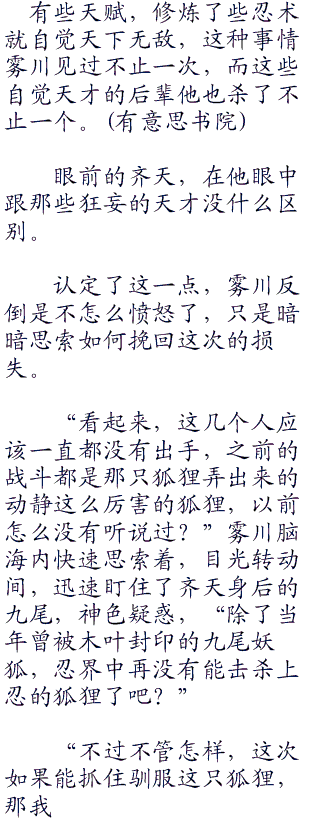 有些天赋，修炼了些忍术
就自觉天下无敌，这种事情
雾川见过不止一次，而这些
自觉天才的后辈他也杀了不
止一个。(有意思书院)
眼前的齐天，在他眼中
跟那些狂妄的天才没什么区
别。
认定了这一点，雾川反
倒是不怎么愤怒了，只是暗
暗思索如何挽回这次的损
失。
“看起来，这几个人应
该一直都没有出手，之前的
战斗都是那只狐狸弄出来的
动静这么厉害的狐狸，以前
怎么没有听说过？”雾川脑
海内快速思索着，目光转动
间，迅速盯住了齐天身后的
九尾，神色疑惑，“除了当
年曾被木叶封印的九尾妖
狐，忍界中再没有能击杀上
忍的狐狸了吧？”
“不过不管怎样，这次
如果能抓住驯服这只狐狸，
那我